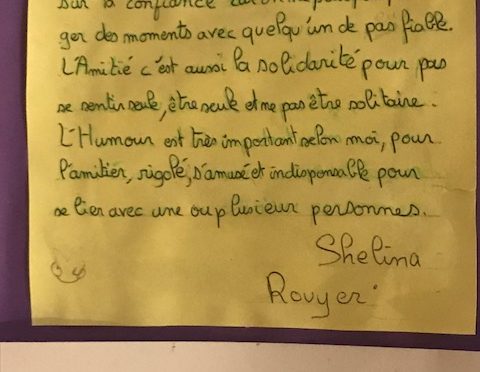 sur la confiance
ger des moments avec quelqu'un de pas fiable.
L'Amitié c'est aussi la solidarité pour pas
se sentir seule, être seule et ne pas être solitaire.
L'Humour est très important selon moi, pour
l'amitier, rigolé, s'amusé et indisponsable pour
se lier avec une ou plusieur personnes.
Shelina
Rouyer